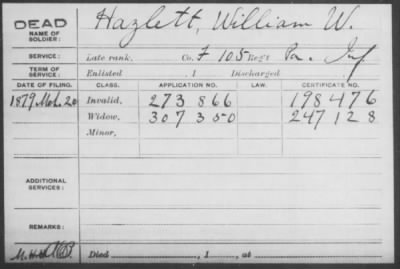 DEAD Hazlett, William W.
NAME OF SOLDIER:
SERVICE: Late rank, Co. F 105 Reg't Pa. Inf
TERM OF SERVICE: Enlisted , 1 Discharged
DATE OF FILING. CLASS. APPLICATION NO. LAW. CERTIFICATE NO.
1879 Mch. 20 Invalid, 273 866 198476
Widow, 307 350 247128
Minor,
ADDITIONAL SERVICES:
REMARKS:
Died , 1 , at